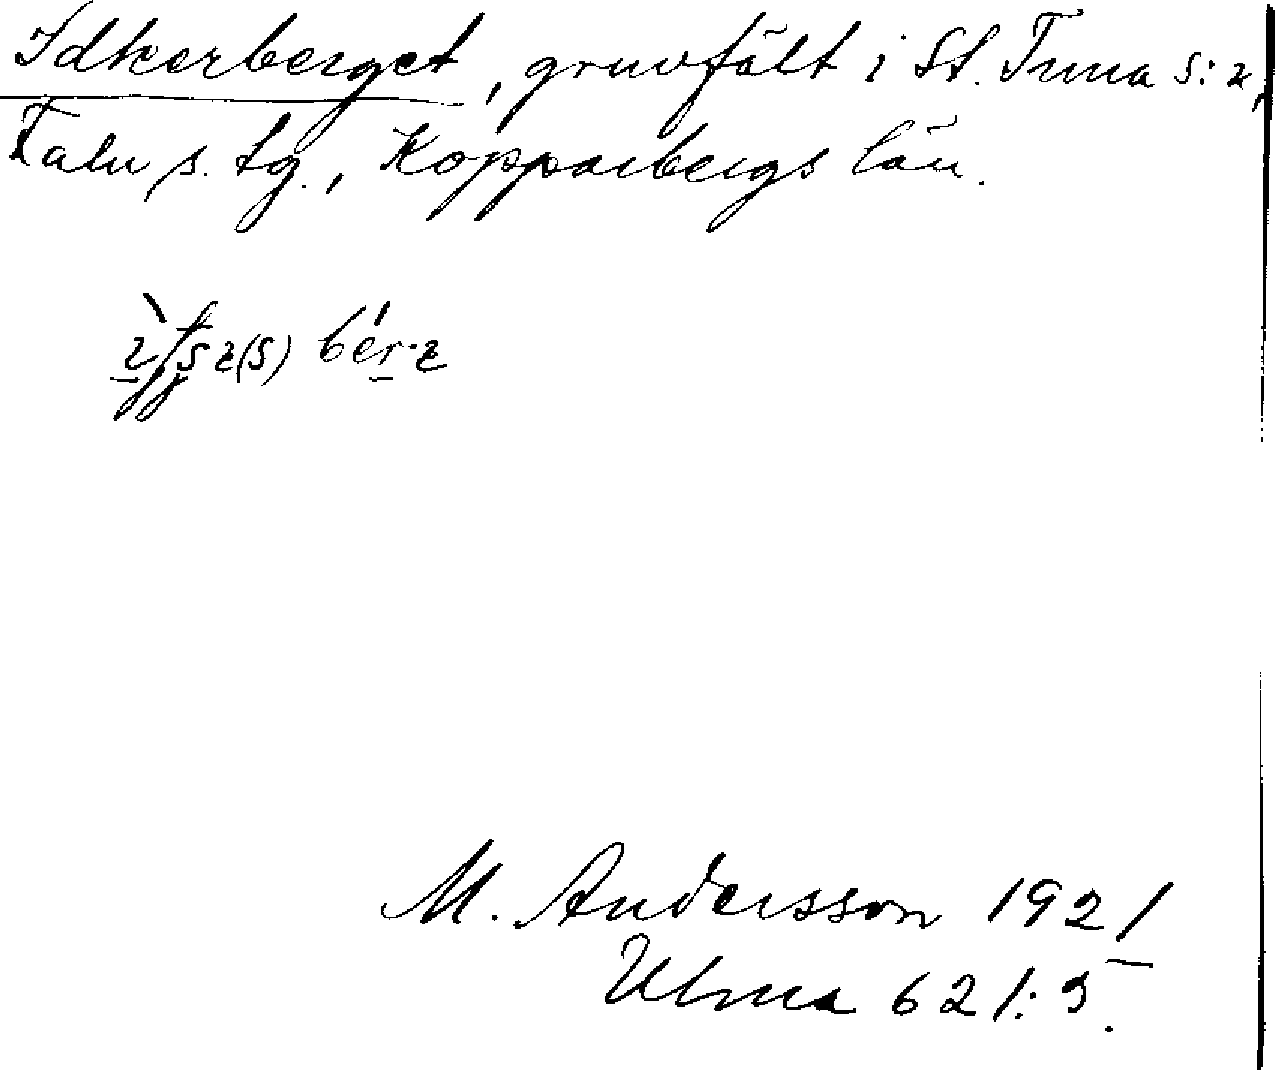 Idkerberget, gruvfält i St. Tuna s:n,
Falu s. tg., Kopparbergs län.
M. Andersson 1921
Ulma 621:3.